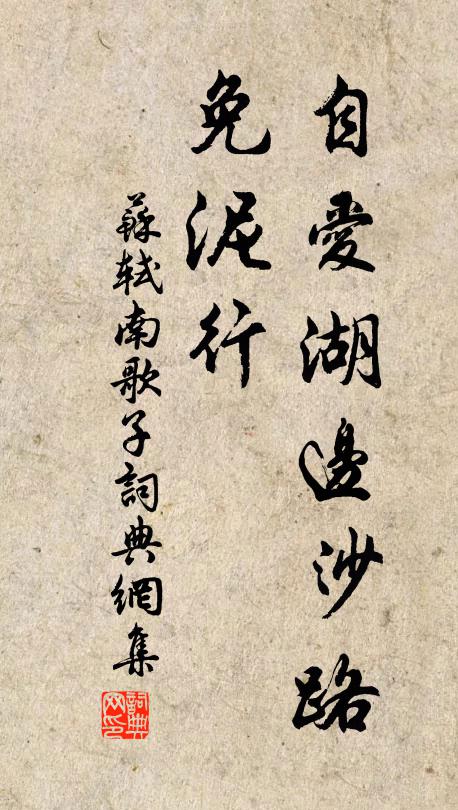 自愛湖邊沙路
免泥行
蘇軾南歌子詞典網集
詞典
网印